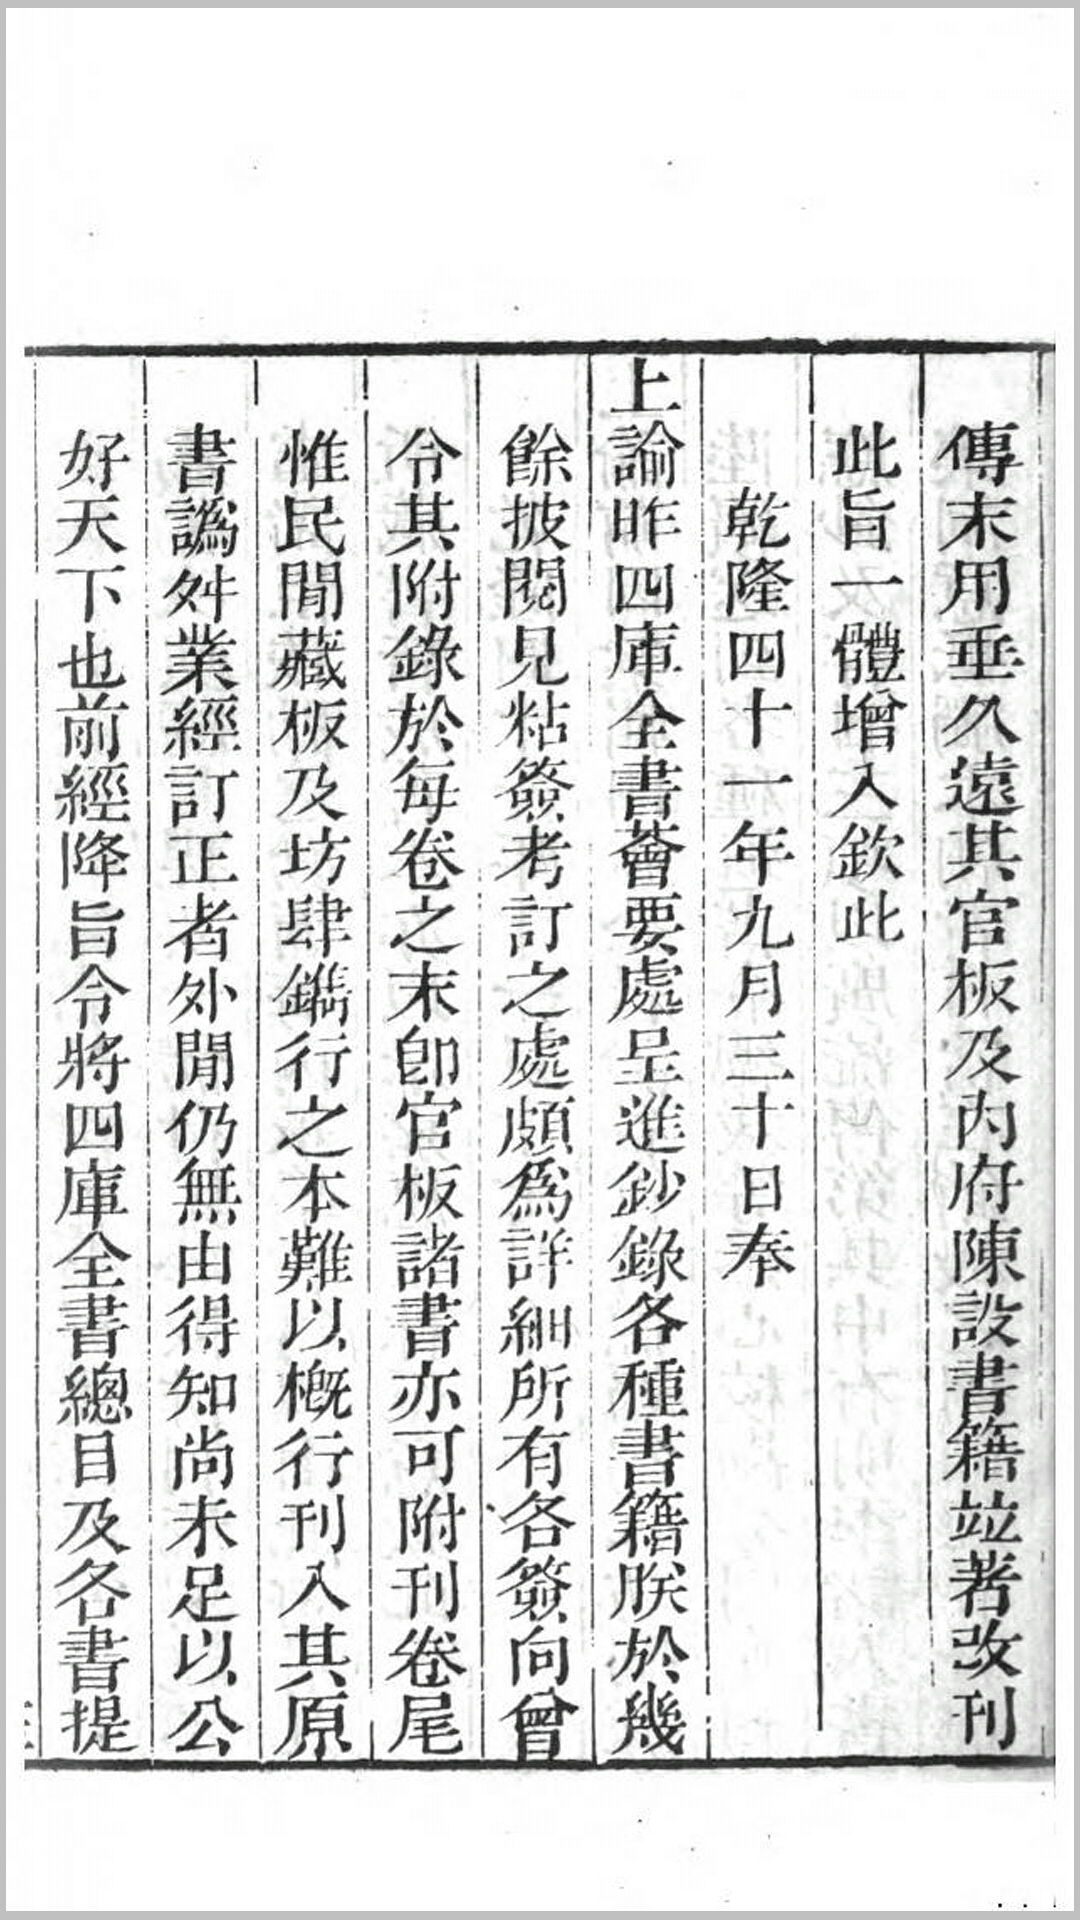 傳末用垂久遠其官板及內府陳設書籍竝著改刊
此旨一體增入欽此
乾隆四十一年九月三十日奉
上諭昨四庫全書薈要處呈進鈔錄各種書籍朕於幾
餘披閱見粘簽考訂之處頗爲詳細所有各簽向曾
令其附錄於每卷之末卽官板諸書亦可附刊卷尾
惟民閒藏板及坊肆鐫行之本難以槪行刊入其原
書譌舛業經訂正者外閒仍無由得知尚未足以公
好天下也前經降旨令將四庫全書總目及各書提